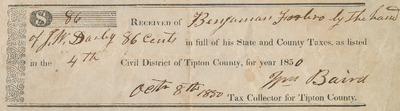 $ 86 Received of Benjamin by the hand
of J. W. Darby 86 Cents in full of his State and County Taxes, as listed
in the 4th Civil District of Tipton County, for year 1850
Octr 8th 1850 Wm Baird
Tax Collector for Tipton County.